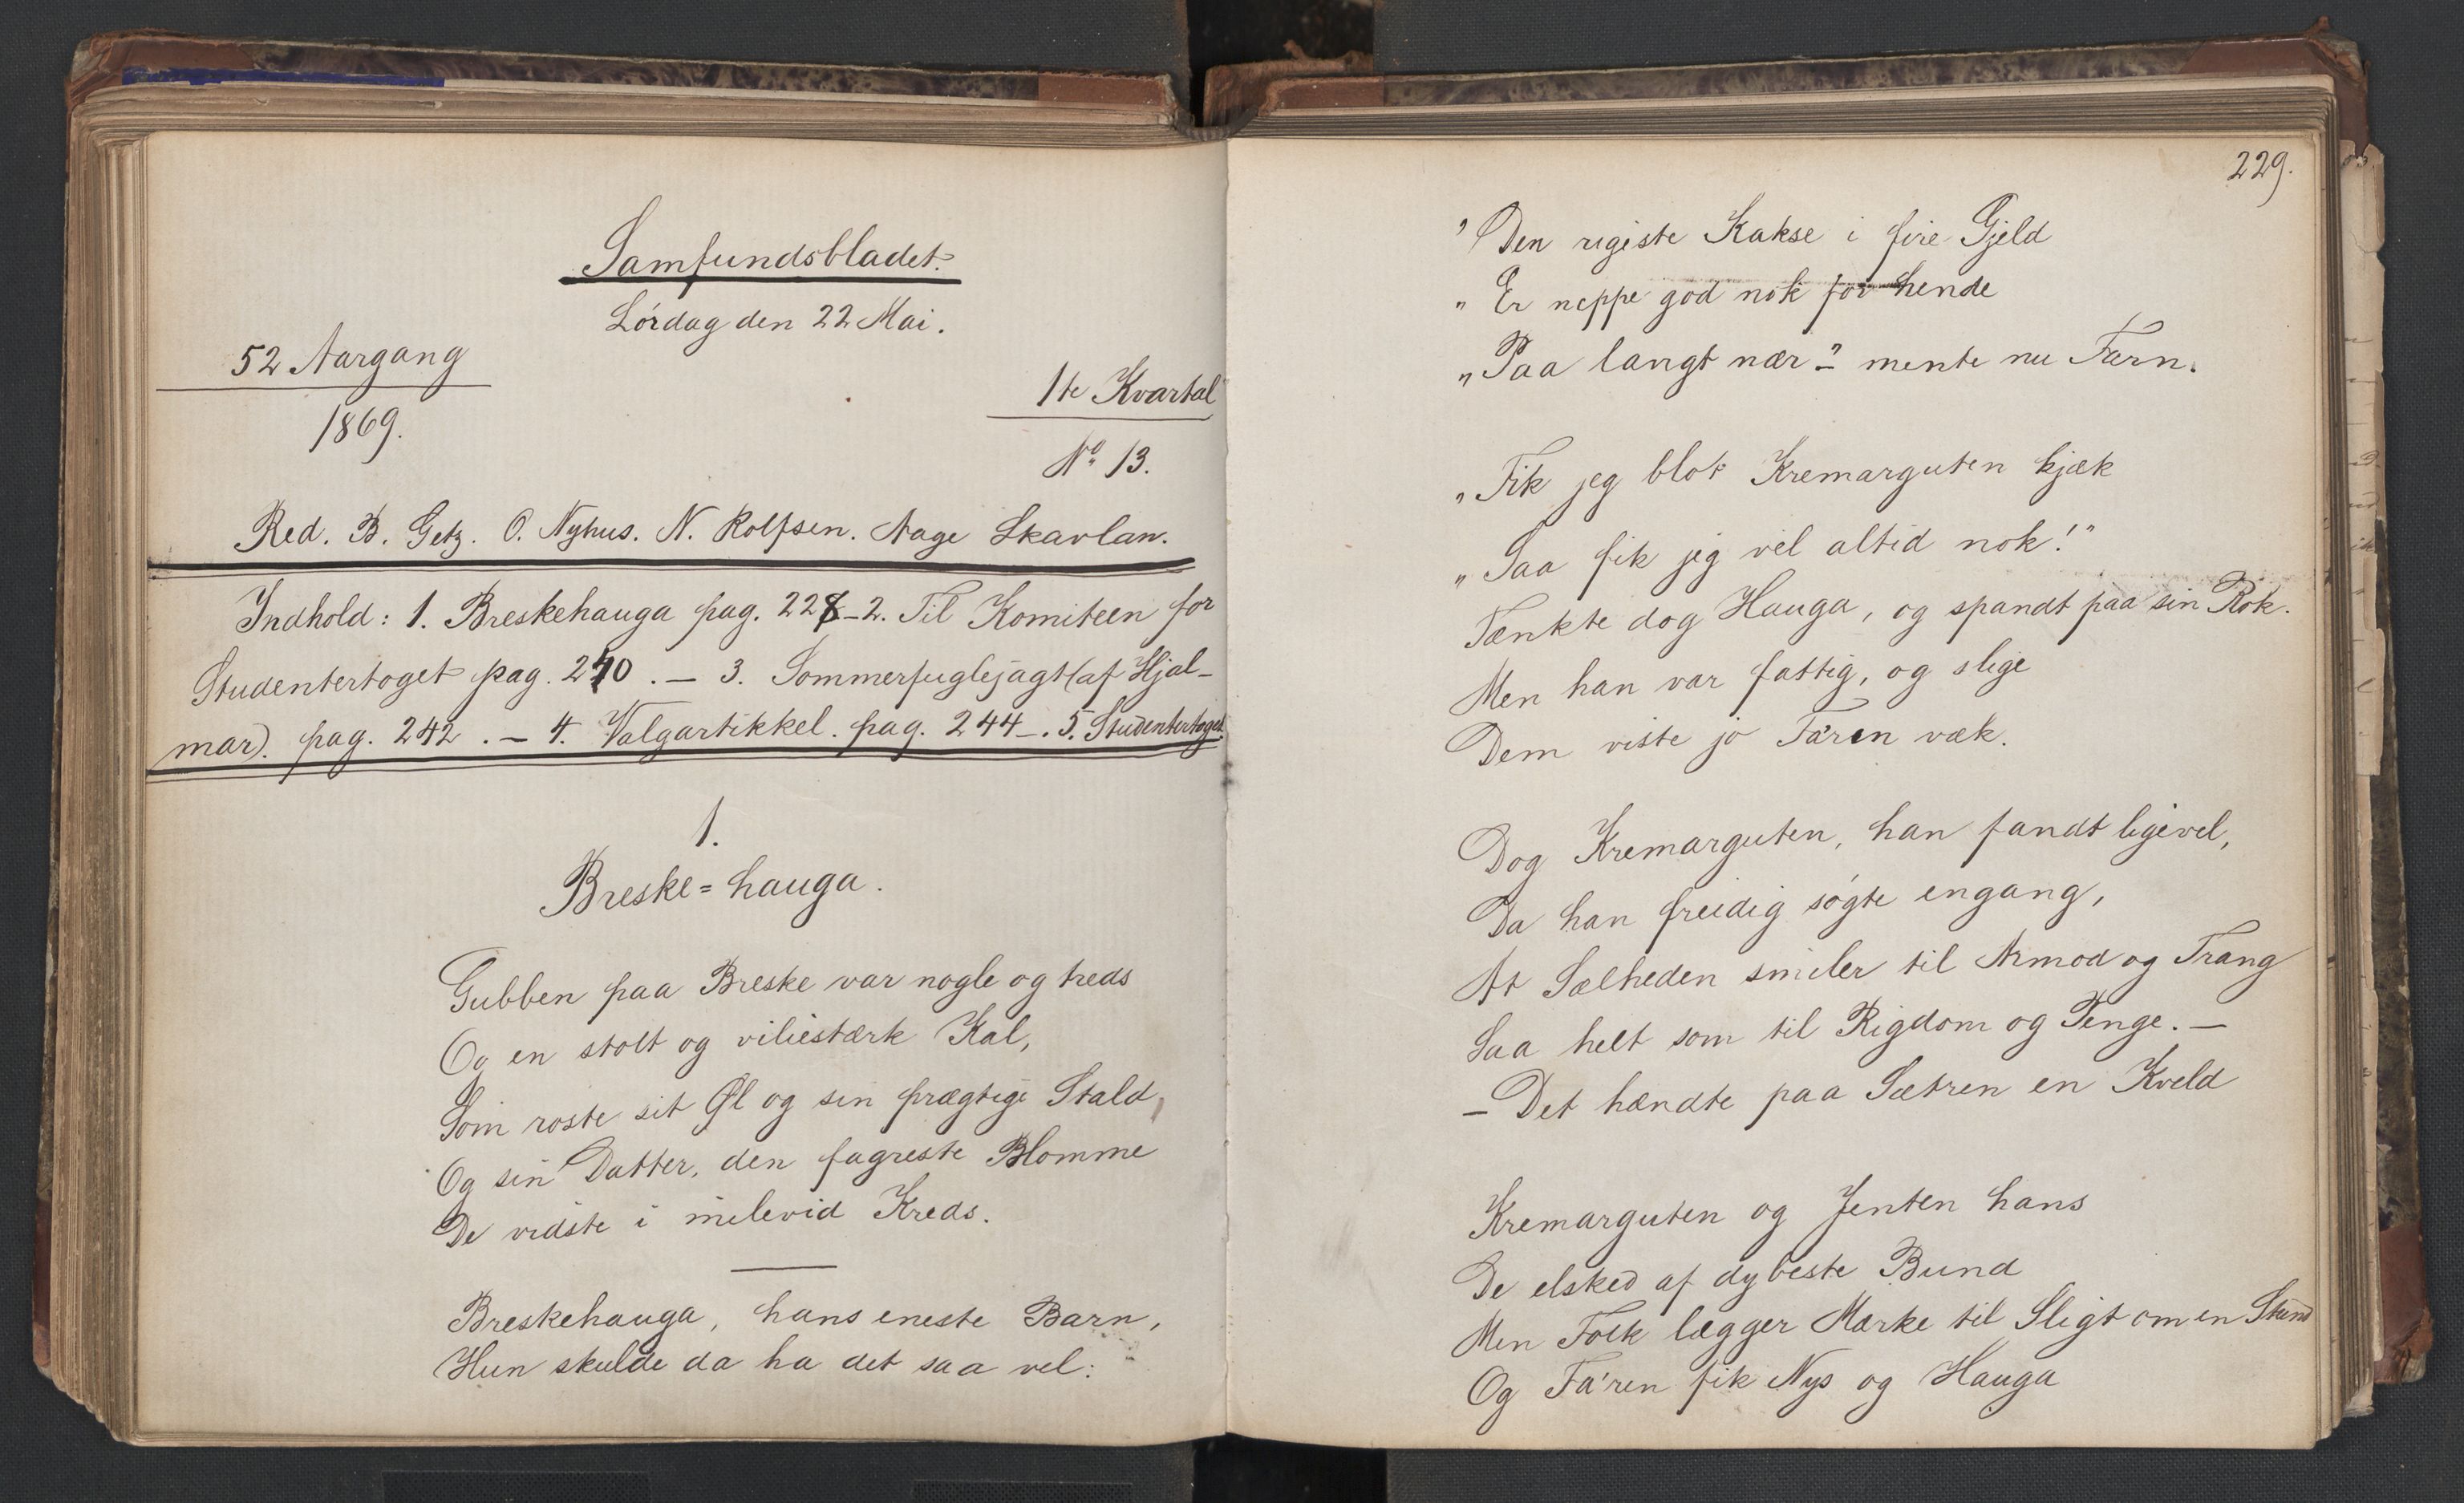 Samfundsbladet.
Lørdag den 22 Mai.
52 Aargang
1869.
1te Kvartal
No 13.
Red. B. Getz. O. Nyhus. N. Rolfsen. Aage Skavlan.
Indhold: 1. Breskehauga pag. 228 - 2. Til Komiteen for
Studentertoget pag. 240. - 3. Sommerfuglejagt (af Hjal-
mar). pag. 242. - 4. Valgartikkel. pag. 244 -. 5. Studentertoget.
1.
Breske=hauga.
Gubben paa Breske var nogle og treds
Og en stolt og viliestærk Kal,
Som roste sit Øl og sin prægtige Stald,
Og sin Datter, den fagreste Blomme
De vidste i milevid Kreds.
Breskehauga, hans eneste Barn,
Hun skulde da ha det saa vel:
229.
"Den rigeste Kakse i fire Gjeld
"Er neppe god nok for hende
"Paa langt nær -" mente nu Farn.
"Fik jeg blot Kremarguten kjæk
"Saa fik jeg vel altid nok!"
Tænkte dog Hauga, og spandt paa sin Rok.
Men han var fattig, og slige
Dem viste jo Fa'ren væk.
Dog Kremarguten, han fandt ligevel,
Da han freidig søgte engang,
At Sælheden smiler til Armod og Trang
Saa helt som til Rigdom og Penge. -
- Det hændte paa Sætren en Kveld
Kremarguten og Jenten hans
De elsked af dybeste Bund
Men Folk lægger Mærke til Sligt om en Stund
Og Fa'ren fik Nys og Hauga